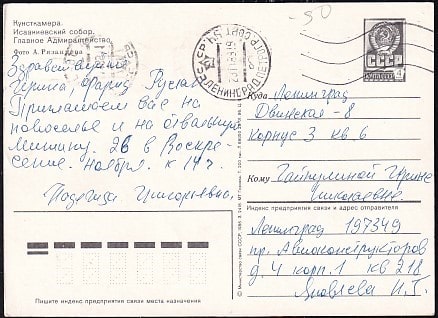 Кунсткамера.
Исаакиевский собор.
Главное Адмиралтейство.
Фото А. Рязанцева
Здравствуйте
Ирина, Фарид, Руслан
Приглашаем вас на
новоселье и на отвальную
26 в Воскре-
сение. ноября. к 14ч.
Надежда Григорьевна.
-50
ЛЕНИНГРАД
СССР
4
Куда Ленинград
Двинская-8
корпус 3 кв 6
Кому Гайнулиной Ирине
Николаевне.
Индекс предприятия связи и адрес отправителя
Ленинград 197349
пр. Авиаконструкторов
д. 4 корп. 1 кв 218
Яковлева Н. Г.
Пишите индекс предприятия связи места назначения